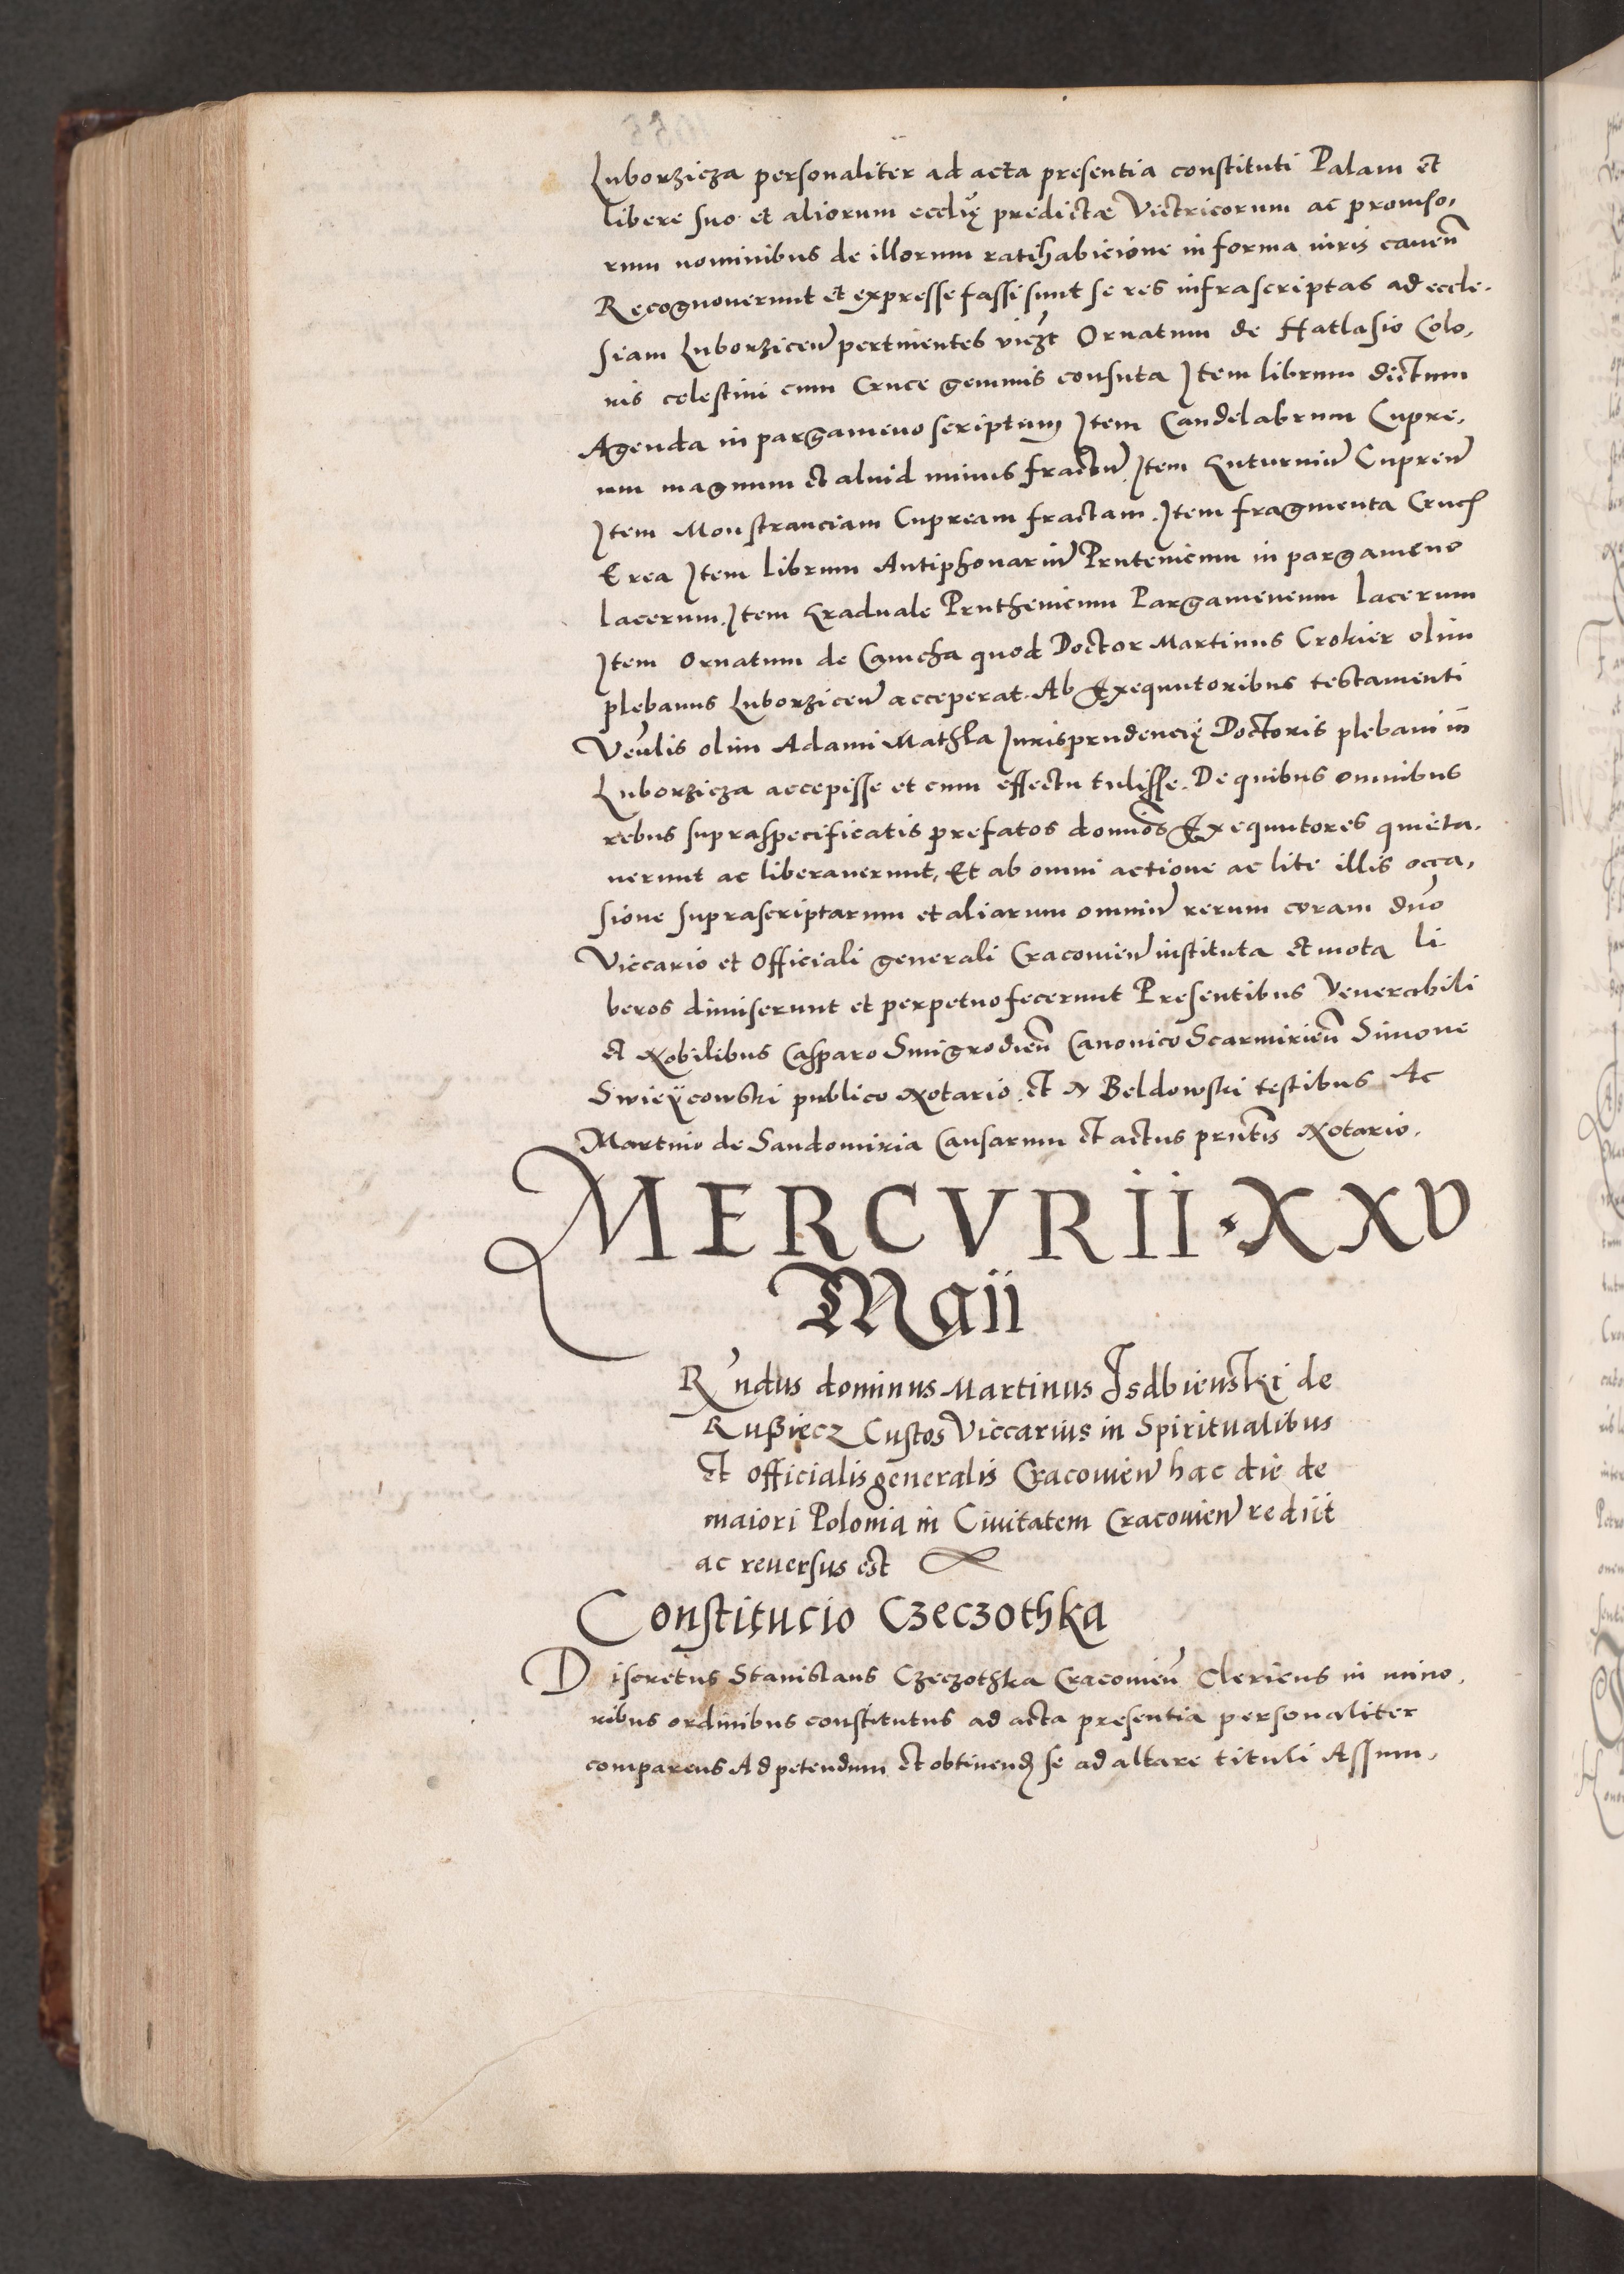 Luborzicza personaliter ad acta presentia constituti Palam et
libere suo et aliorum ecclię predictæ Victricorum ac proviso,
rum nominibus de illorum ratihabicione in forma iuris caven̄
Recognoverunt et expresse fassi sunt se res infrascriptas ad eccle,
siam Luborzicen̄ pertinentes viczt Ornatum de Hatlasio Colo,
ris celestini cum Cruce gemmis consuta Item librum dictum
Agenda in pargameno scriptum Item Candelabrum Cupre,
um magnum et aliud minus fractū Item Luturniū Cupreū
Item Monstranciam Cupream fractam. Item fragmenta Crucis
Erea Item librum Antiphonariū Prutenicum in pargameno
lacerum. Item Graduale Pruthenicum Pargameneum lacerum
Item Ornatum de Camcha quod Doctor Martinus Crokier olim
plebanus Luborzicen̄ acceperat. Ab Exequutoribus testamenti
Veńlis olim Adami Mathla Jurisprudencię Doctoris plebani in
Luborzicza accepisse et cum effectu tulisse. De quibus omnibus
rebus supraspecificatis prefatos domios Exequutores quieta,
verunt ac liberaverunt, Et ab omni actione ac lite illis occa,
sione suprascriptarum et aliarum omniū rerum coram dńo
Viccario et Officiali generali Cracovien̄ instituta et mota li
beros dimiserunt et perpetuo fecerunt Presentibus Venerabili
et Nobilibus Casparo Smigrodien̄ Canonico Scarmirien̄ Simone
Swieÿcowski publico Notario et N Beldowski testibus Ac
Martino de Sandomiria Causarum et actus prntis Notario.
MERCVRII · XXV
Maii
Rńdus dominus Martinus Isdbienski de
Rußiecz Custos Viccarius in Spiritualibus
et officialis generalis Cracovien̄ hac die de
maiori Polonia in Civitatem Cracovien̄ rediit
ac reversus est
Constitucio Czeczothka
Discretus Stanislaus Czeczothka Cracovien̄ Clericus in mino,
ribus ordinibus constitutus ad acta presentia personaliter
comparens Ad petendum et obtinend se ad altare tituli Assum,